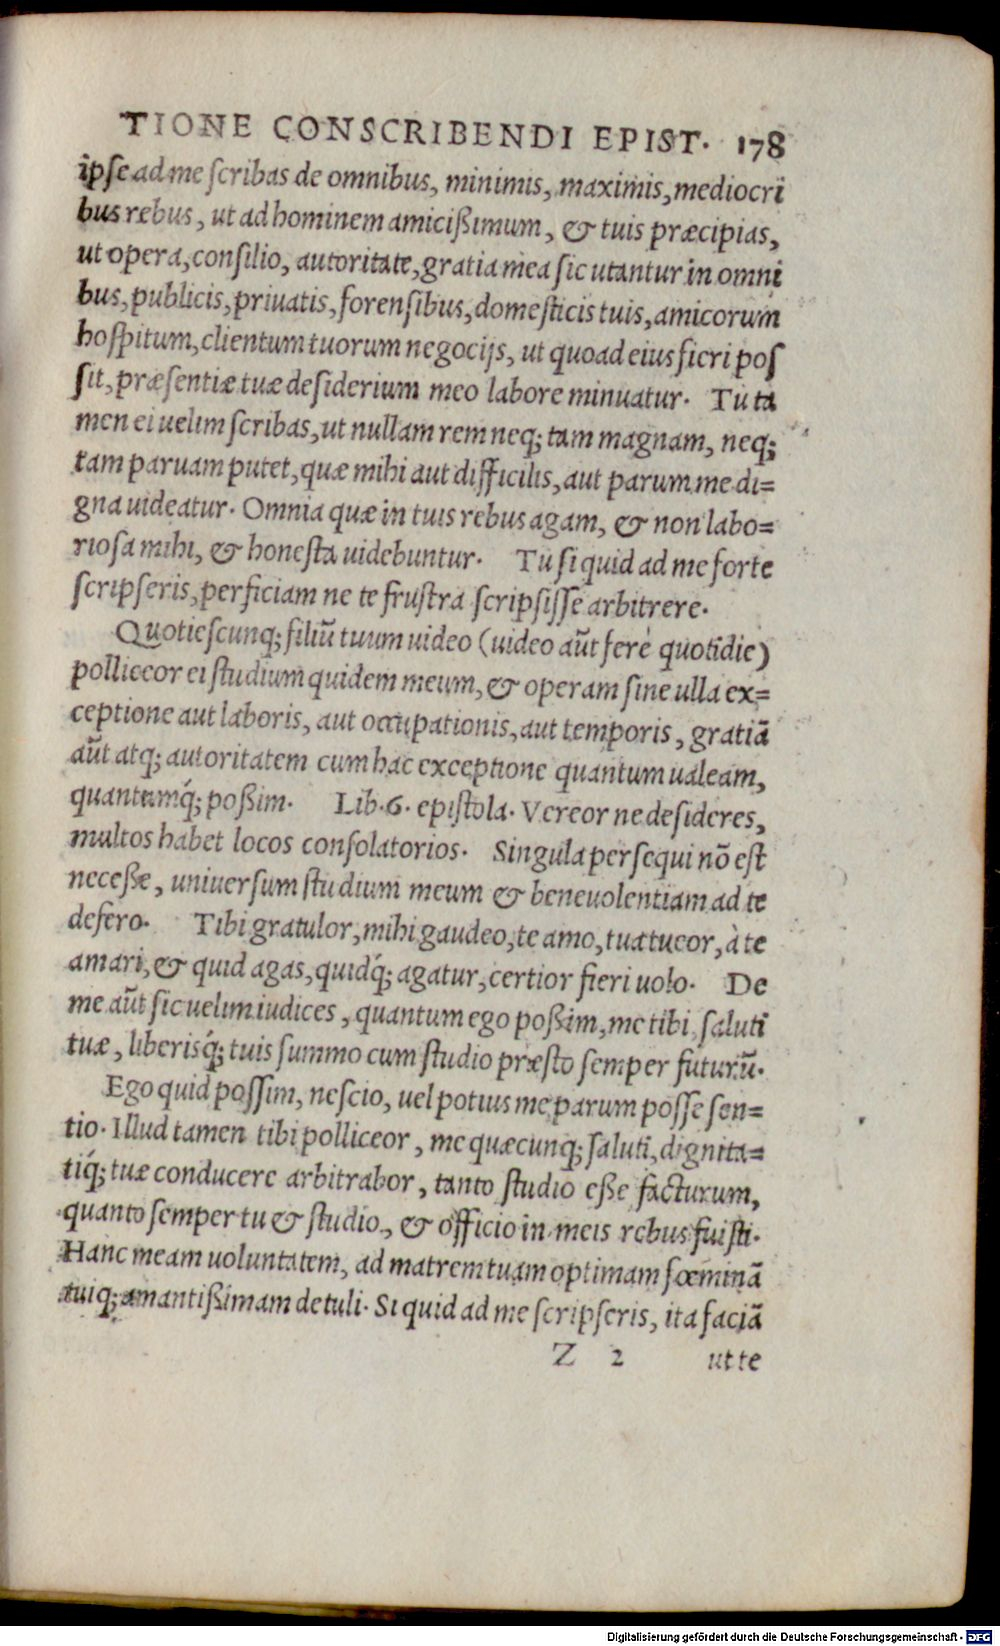 TIONE CONSCRIBENDI EPIST. 178
ipse ad me scribas de omnibus, minimis, maximis, mediocri
bus rebus, ut ad hominem amicißimum, & tuis præcipias,
ut opera, consilio, autoritate, gratia mea sic utantur in omni
bus, publicis, priuatis, forensibus, domesticis tuis, amicorum
hospitum, clientum tuorum negocijs, ut quoad eius fieri pos
sit, præsentiæ tuæ desiderium meo labore minuatur. Tu ta
men ei uelim scribas, ut nullam rem neq; tam magnam, neq;
tam paruam putet, quæ mihi aut difficilis, aut parum me di=
gna uideatur. Omnia quæ in tuis rebus agam, & non labo=
riosa mihi, & honesta uidebuntur. Tu si quid ad me forte
scripseris, perficiam ne te frustra scripsisse arbitrere.
Quotiescunq; filiũ tuum uideo (uideo aũt ferè quotidie)
polliceor ei studium quidem meum, & operam sine ulla ex=
ceptione aut laboris, aut occupationis, aut temporis, gratiã
aũt atq; autoritatem cum hac exceptione quantum ualeam,
quantumq́; poßim. Lib. 6. epistola. Vereor ne desideres,
multos habet locos consolatorios. Singula persequi nõ est
neceße, uniuersum studium meum & beneuolentiam ad te
defero. Tibi gratulor, mihi gaudeo, te amo, tua tueor, à te
amari, & quid agas, quidq́; agatur, certior fieri uolo. De
me aũt sic uelim iudices, quantum ego poßim, me tibi, saluti
tuæ, liberisq́; tuis summo cum studio præsto semper futurũ.
Ego quid possim, nescio, uel potius me parum posse sen=
tio. Illud tamen tibi polliceor, me quæcunq; saluti, dignita=
tiq́; tuæ conducere arbitrabor, tanto studio eße facturum,
quanto semper tu & studio, & officio in meis rebus fuisti.
Hanc meam uoluntatem, ad matrem tuam optimam fœminã
tuiq; amantißimam detuli. Si quid ad me scripseris, ita faciã
Z 2 ut te
Digitalisierung gefördert durch die Deutsche Forschungsgemeinschaft - DFG